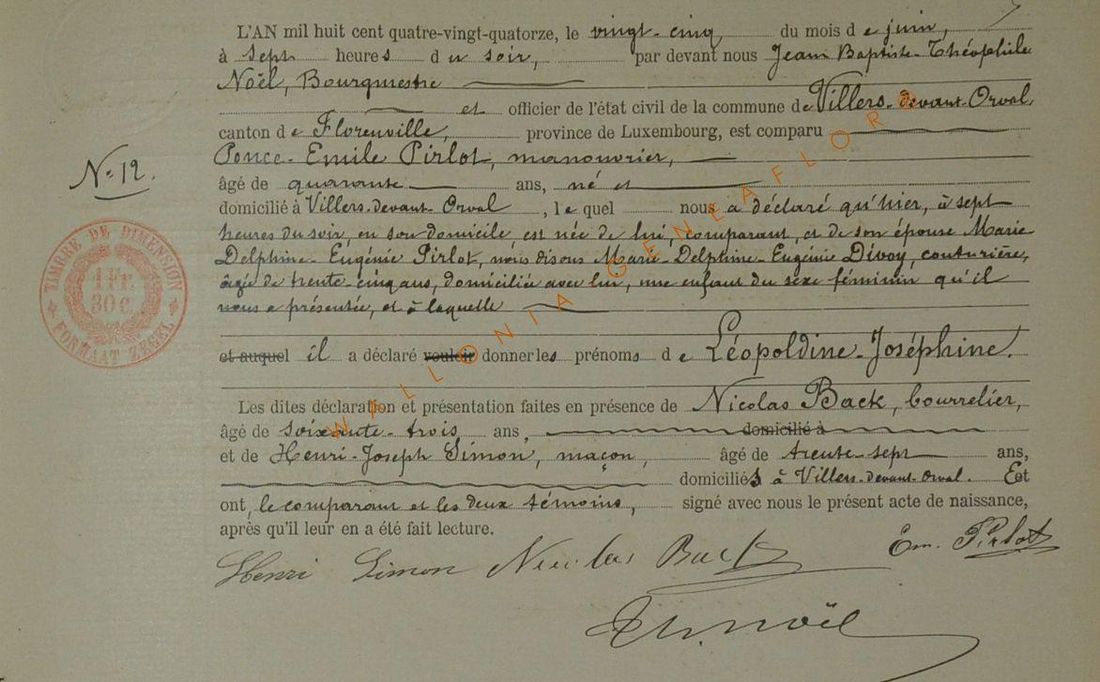 L'AN mil huit cent quatre-vingt-quatorze, le vingt-cinq, du mois de juin,
à sept heures du soir, par devant nous Jean Baptiste-Théophile
Noël, Bourgmestre
et officier de l'état civil de la commune de Villers-devant-Orval,
canton de Florenville, province de Luxembourg, est comparu
Ponce-Emile Pirlot, manouvrier,
N° 12.
âgé de quarante ans, né et
domicilié à Villers-devant-Orval, lequel nous a déclaré qu'hier, à sept
heures du soir, en son domicile, est née de lui, comparant, et de son épouse Marie
Delphine-Eugénie Pirlot, nous disons Marie-Delphine-Eugénie Divoy, couturière,
âgée de trente-cinq ans, domiciliée avec lui, une enfant du sexe féminin qu'il
nous a présentée, et à laquelle
TIMBRE DE DIMENSION
1 FR.
30 C.
FORMAAT ZEGEL
et auquel il a déclaré vouloir donner les prénoms de Léopoldine-Joséphine.
Les dites déclaration et présentation faites en présence de Nicolas Back, bourrelier,
âgé de soixante-trois ans, domicilié à
et de Henri-Joseph Simon, maçon, âgé de trente-sept ans,
domiciliés à Villers-devant-Orval. Et
ont, le comparant et les deux témoins, signé avec nous le présent acte de naissance,
après qu'il leur en a été fait lecture.
Henri Simon Nicolas Back Em. Pirlot
Th. Noël
WALLONIA GENEAFLOR